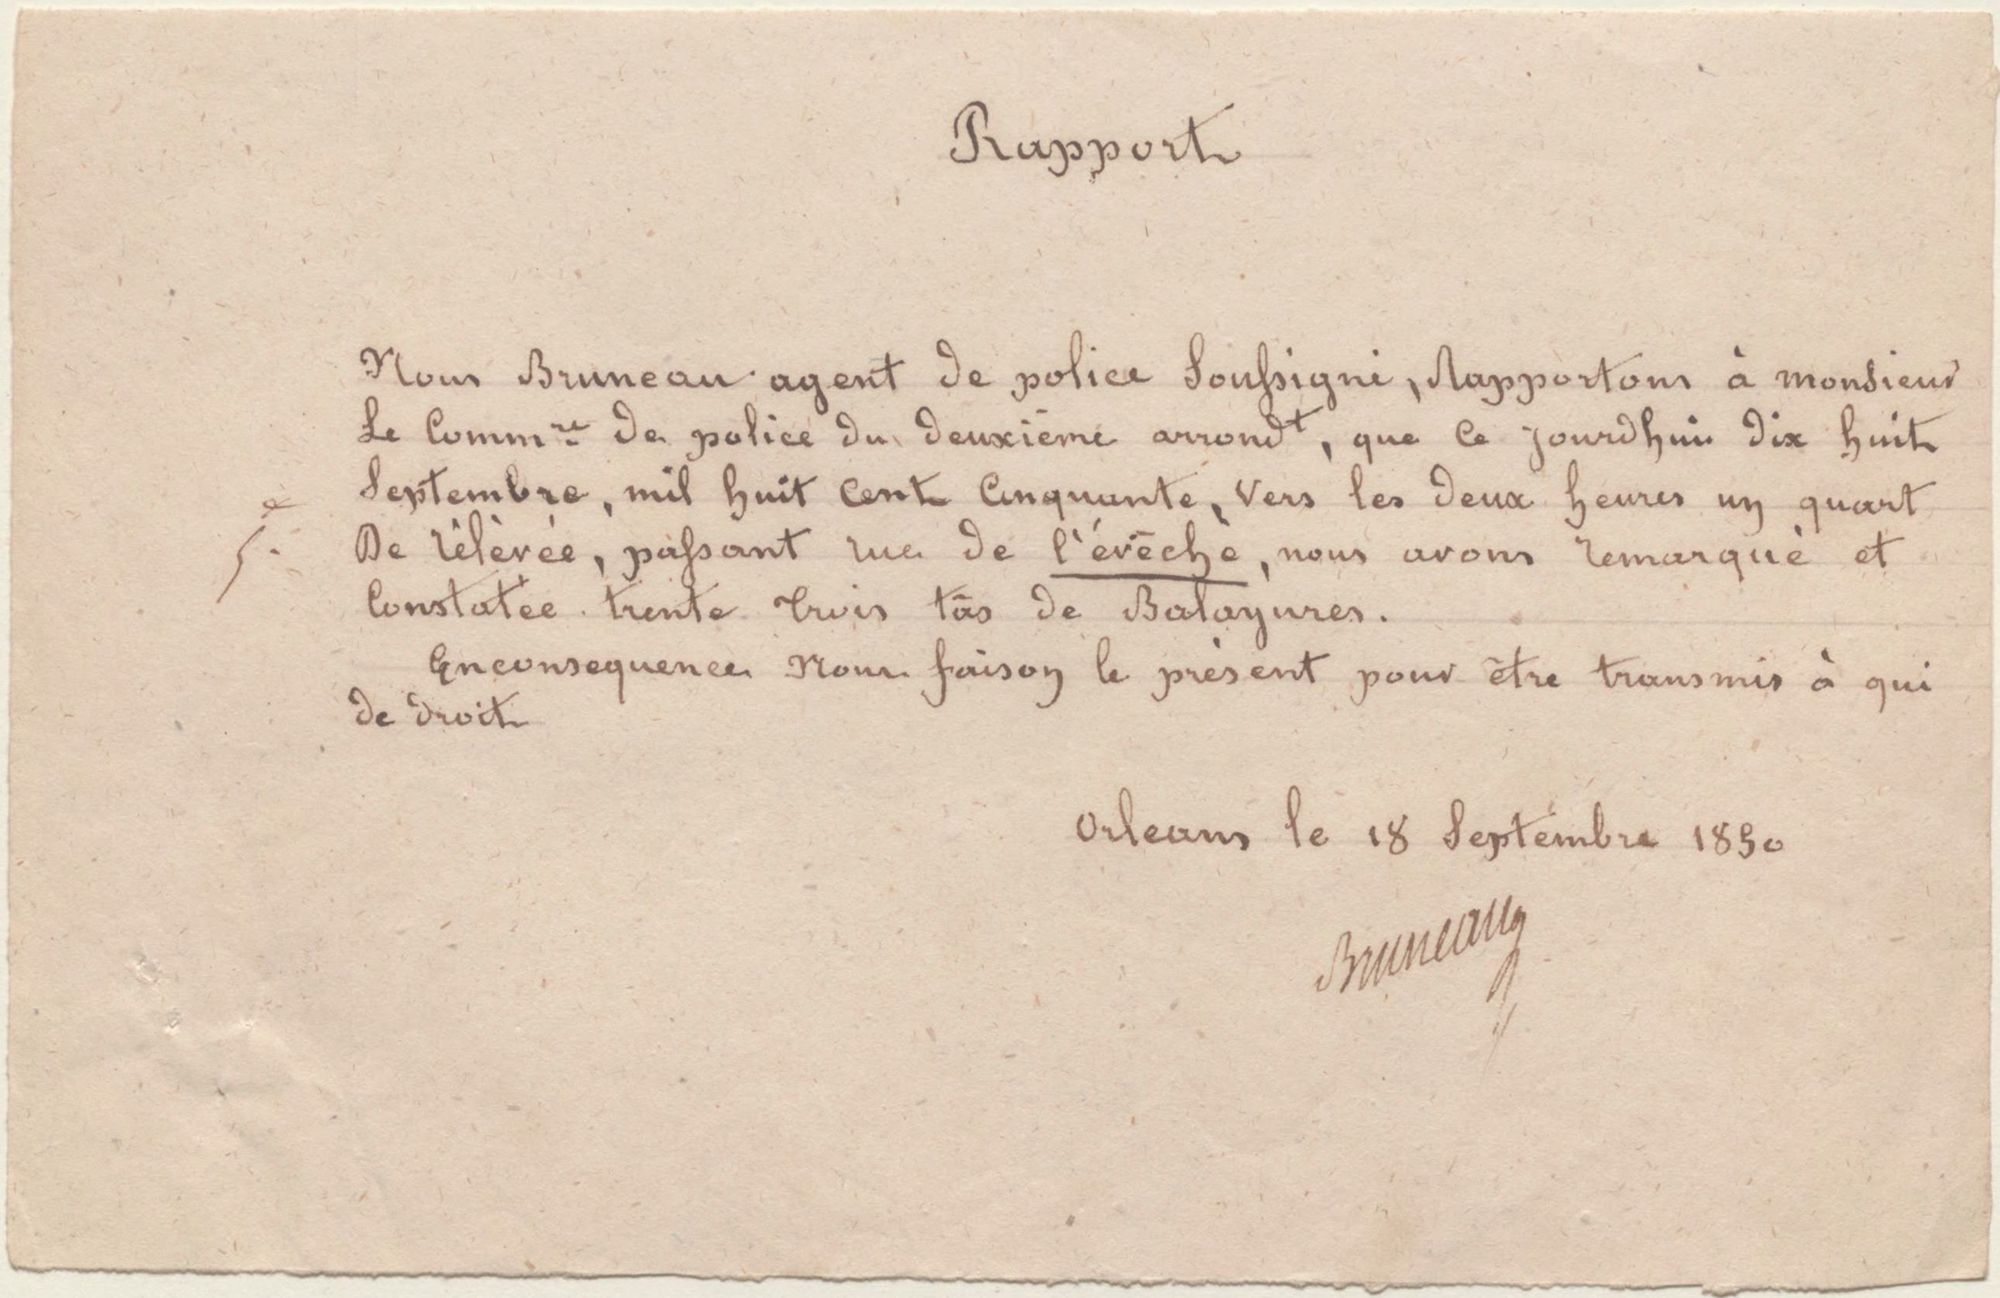 Rapport
Nous Bruneau agent de police Soussigné, Rapportons à monsieur
Le Comm.re de police du deuxième arrondt, que Ce jourdhui dix huit
Septembre, mil huit Cent Cinquante, Vers les deux heures un quart
De rélèvée, passant rue de l'évêché, nous avons remarqué et
Constatée trente trois tâs de Balayures.
Enconsequence Nous faison le présent pour être transmis à qui
de droit
Orleans le 18 Septembre 1850
Bruneau